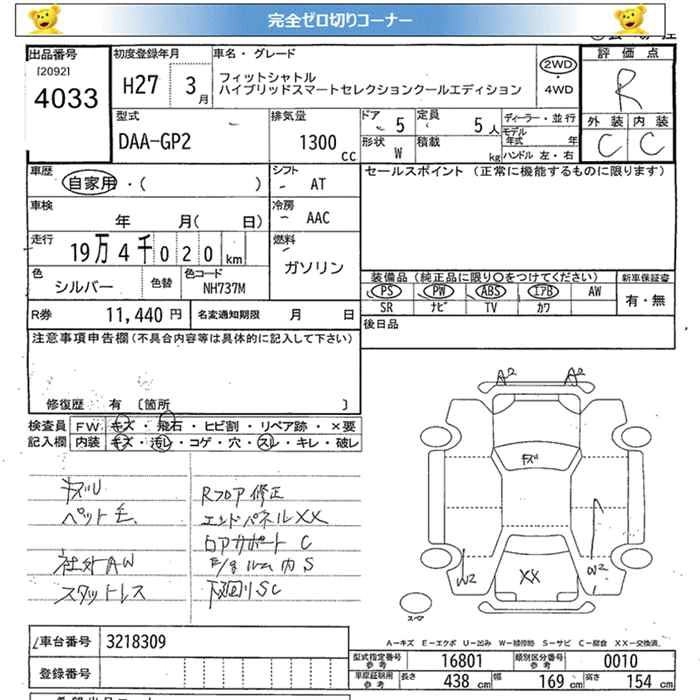 完全ゼロ切りコーナー
出品番号 初度登録年月 車名・グレード 評価点
[2092] 4033 H27 3月 フィットシャトル
ハイブリッドスマートセレクションクールエディション
2WD・4WD
R
型式 排気量 ドア 5 定員 5人 ディーラー・並行 外装 内装
DAA-GP2 1300cc 形状 W 積載 kg モデル年式 年 C C
ハンドル 左・右
車歴 自家用・( ) シフト AT セールスポイント (正常に機能するものに限ります)
車検 年 月( 日) 冷房 AAC
走行 19万4千020km 燃料 ガソリン
色 シルバー 色替 色コード NH737M
装備品 (純正品に限り〇をつけてください) 新車保証書
PS PW ABS エアB AW 有・無
SR ナビ TV カワ
R券 11,440円 名変通知期限 月 日 後日品
注意事項申告欄 (不具合内容等は具体的に記入して下さい)
修復歴 有 〔箇所 〕
検査員 FW. キズ・飛石・ヒビ割・リペア跡・×要
記入欄 内装 キズ・汚レ・コゲ・穴・スレ・キレ・破レ
A2 A2
キズU
ペット毛
社外AW
スタットレス
Rフロア修正
エンドパネルXX
ロアサポート C
下回りSC
W2 XX W2
スペア
A-キズ E-エクボ U-凹み W-補修跡 S-サビ C-腐食 XX-交換済
車台番号 3218309
登録番号
型式指定番号 参考 16801 類別区分番号 参考 0010
車庫証明用 参考 長さ 438cm 幅 169cm 高さ 154cm